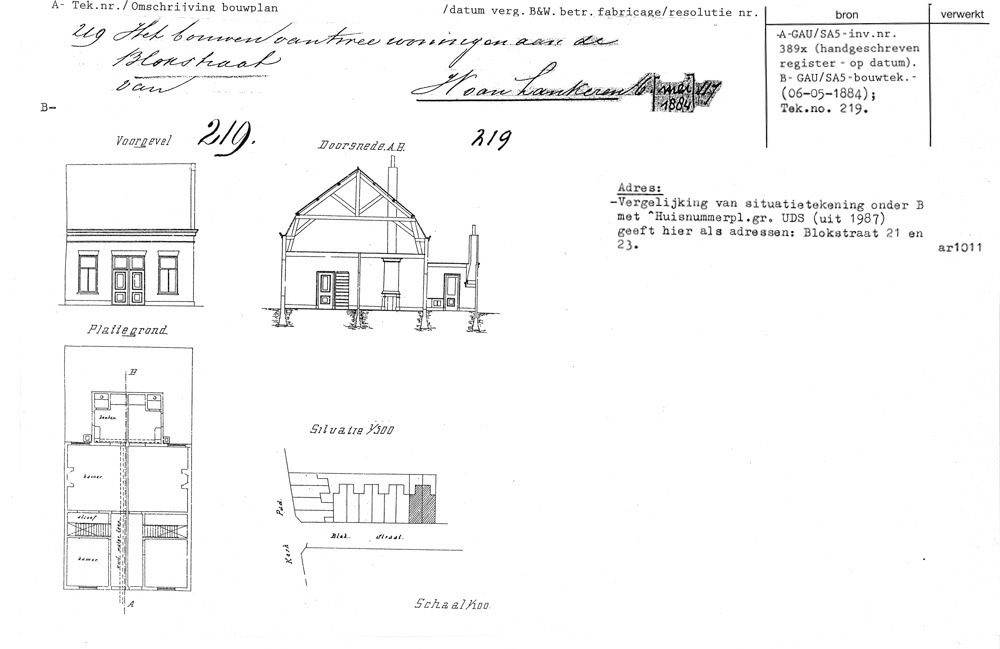 A- Tek.nr./Omschrijving bouwplan
/datum verg. B&W. betr. fabricage/resolutie nr.
bron
verwerkt
219 Het bouwen van twee woningen aan de
Blokstraat
van
H van Lankeren
mei
1884
-A-GAU/SA5-inv.nr.
389x (handgeschreven
register - op datum).
B- GAU/SA5-bouwtek.-
(06-05-1884);
Tek.no. 219.
B-
Voorgevel
219.
Doorsnede A.B.
219
Adres:
-Vergelijking van situatietekening onder B
met ^Huisnummerpl.gr. UDS (uit 1987)
geeft hier als adressen: Blokstraat 21 en
23.
ar1011
Plattegrond
B
keuken
kamer
alcoof
kamer
A
Situatie 1/500
Pad.
Blok straat.
Kerk
Schaal 1/100